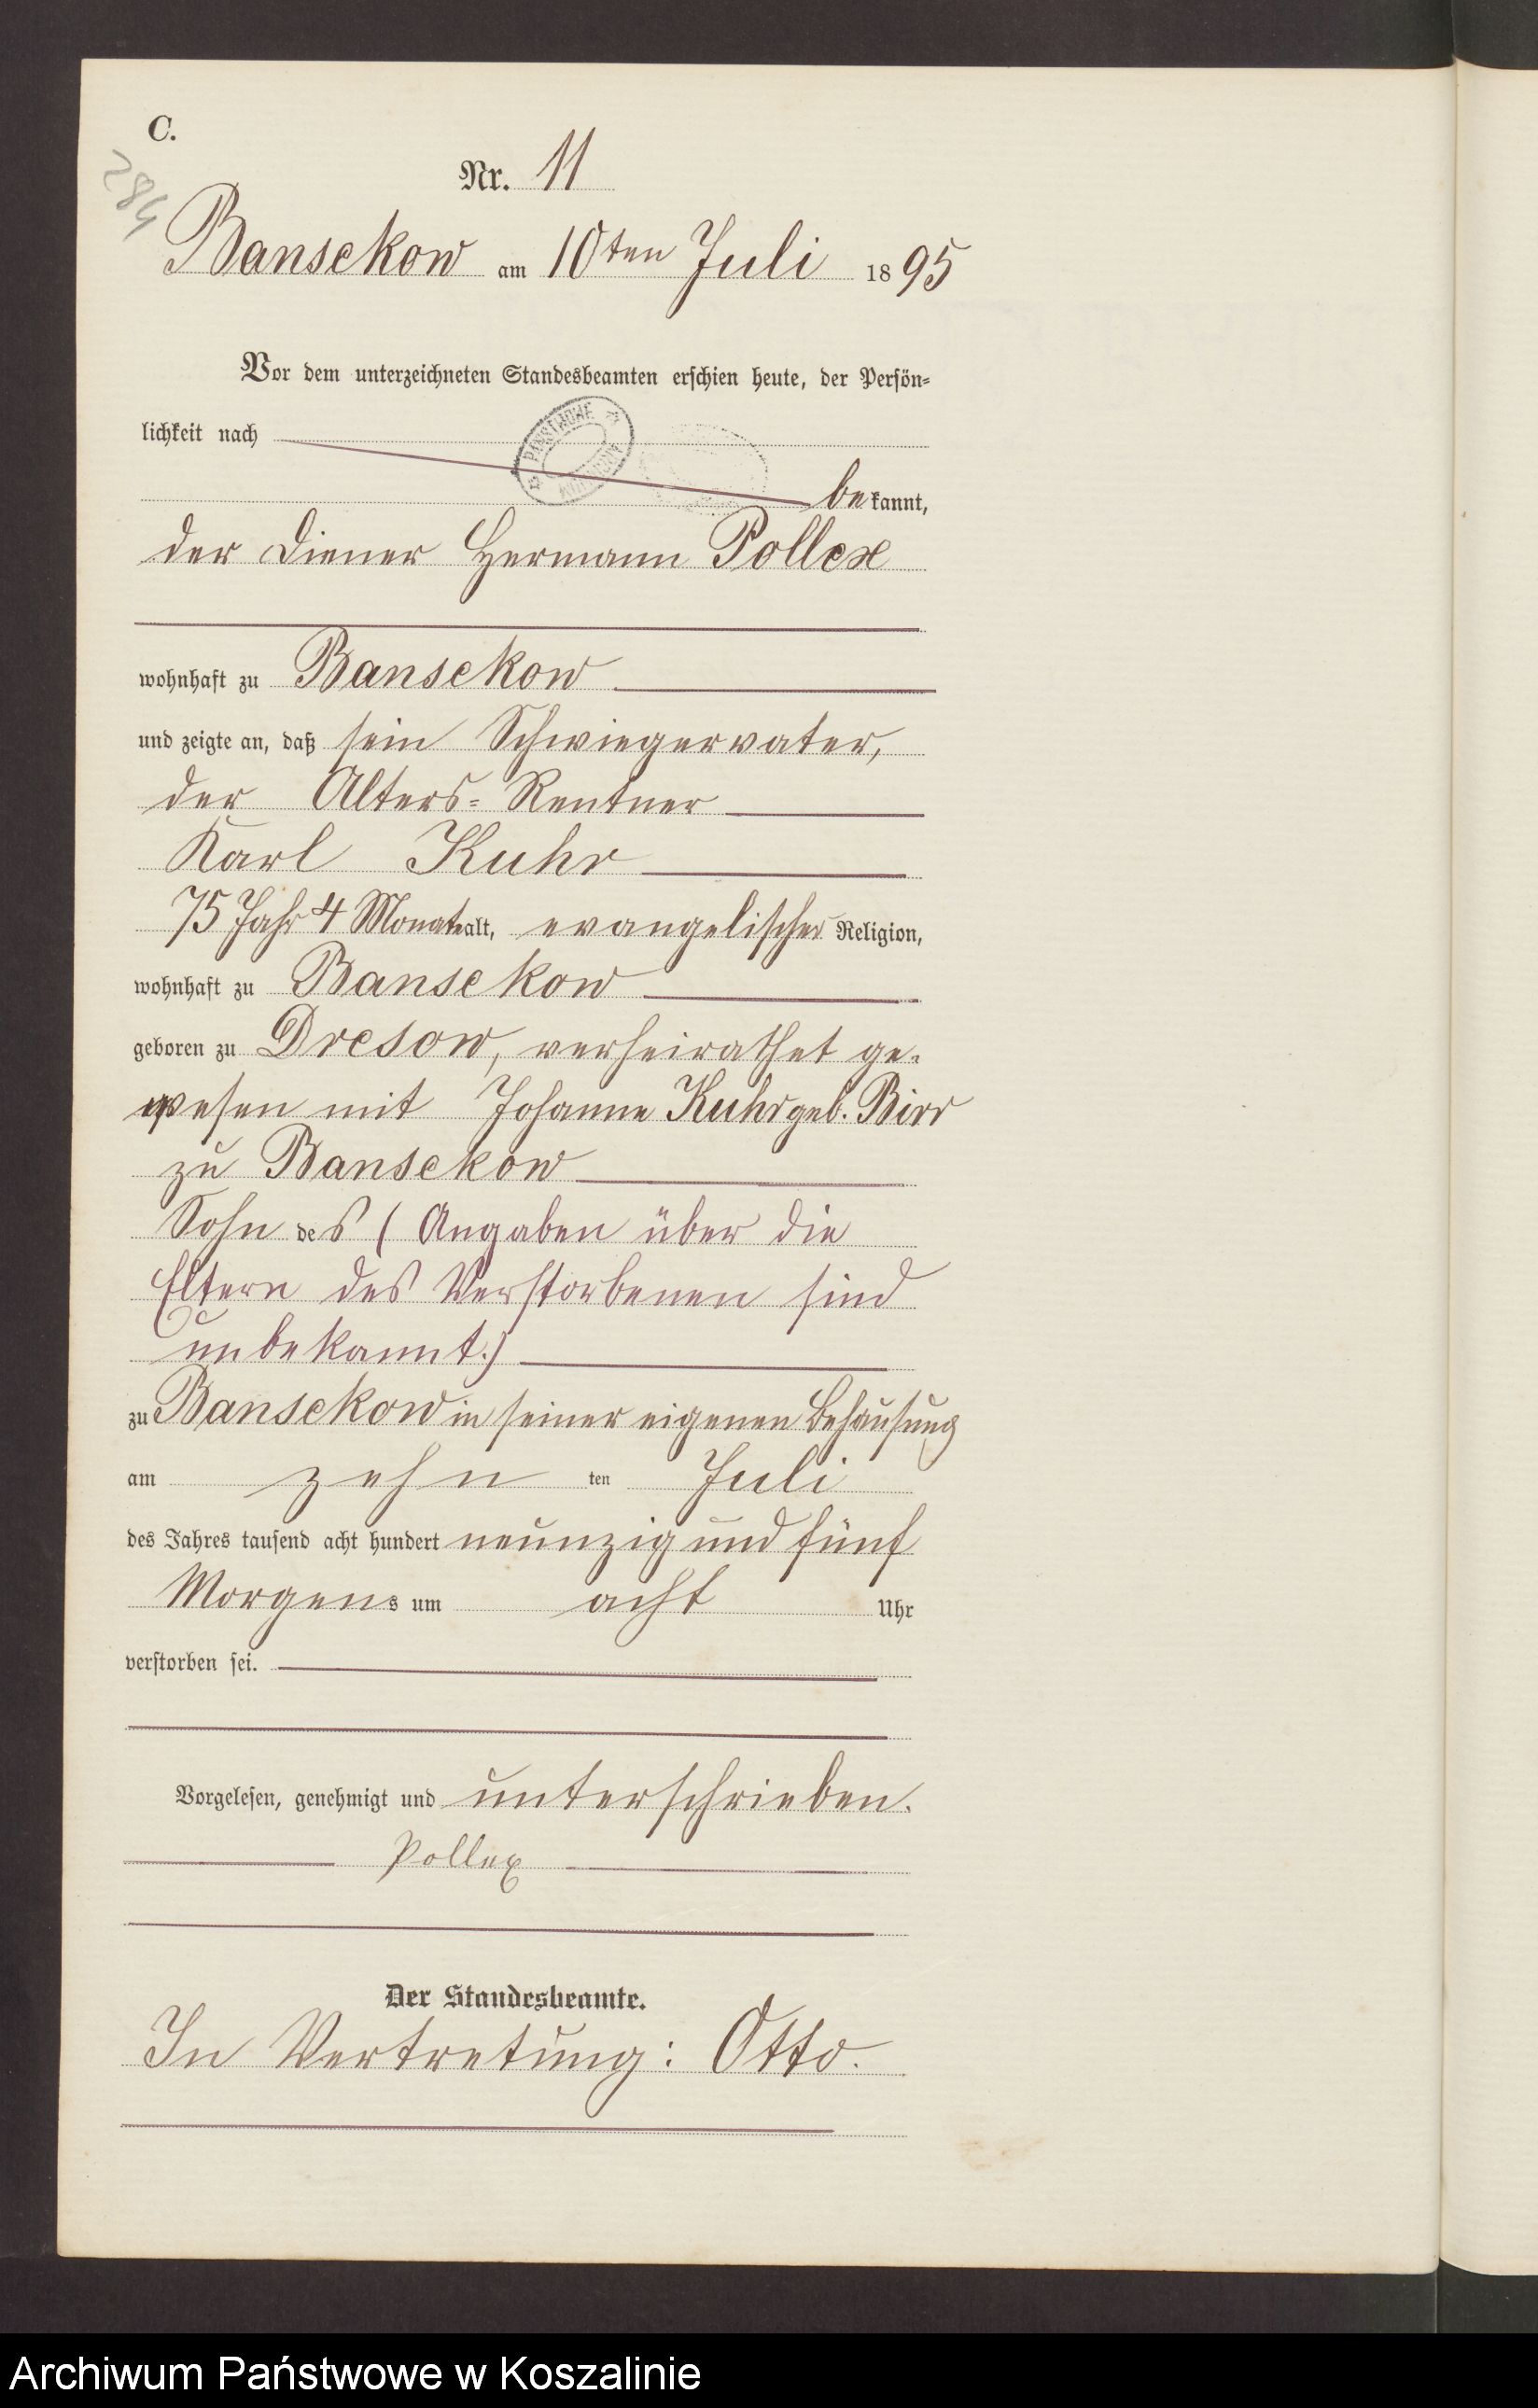 C.
284
Nr. 11
Bansekow am 10ten Juli 1895
Vor dem unterzeichneten Standesbeamten erschien heute, der Persön-
lichkeit nach
bekannt,
der Diener Hermann Pollex
wohnhaft zu Bansekow
und zeigte an, daß sein Schwiegervater,
der Alters-Rentner
Karl Kuhr
75 Jahr 4 Monate alt, evangelischer Religion,
wohnhaft zu Bansekow
geboren zu Dresow, verheirathet ge-
wesen mit Johanne Kuhr geb. Birr
zu Bansekow
Sohn des (Angaben über die
Eltern des Verstorbenen sind
unbekannt.)
zu Bansekow in seiner eigenen Behausung
am zehn ten Juli
des Jahres tausend acht hundert neunzig und fünf
Morgens um acht Uhr
verstorben sei.
Vorgelesen, genehmigt und unterschrieben.
Pollex
Der Standesbeamte.
In Vertretung: Otto.
Archiwum Państwowe w Koszalinie